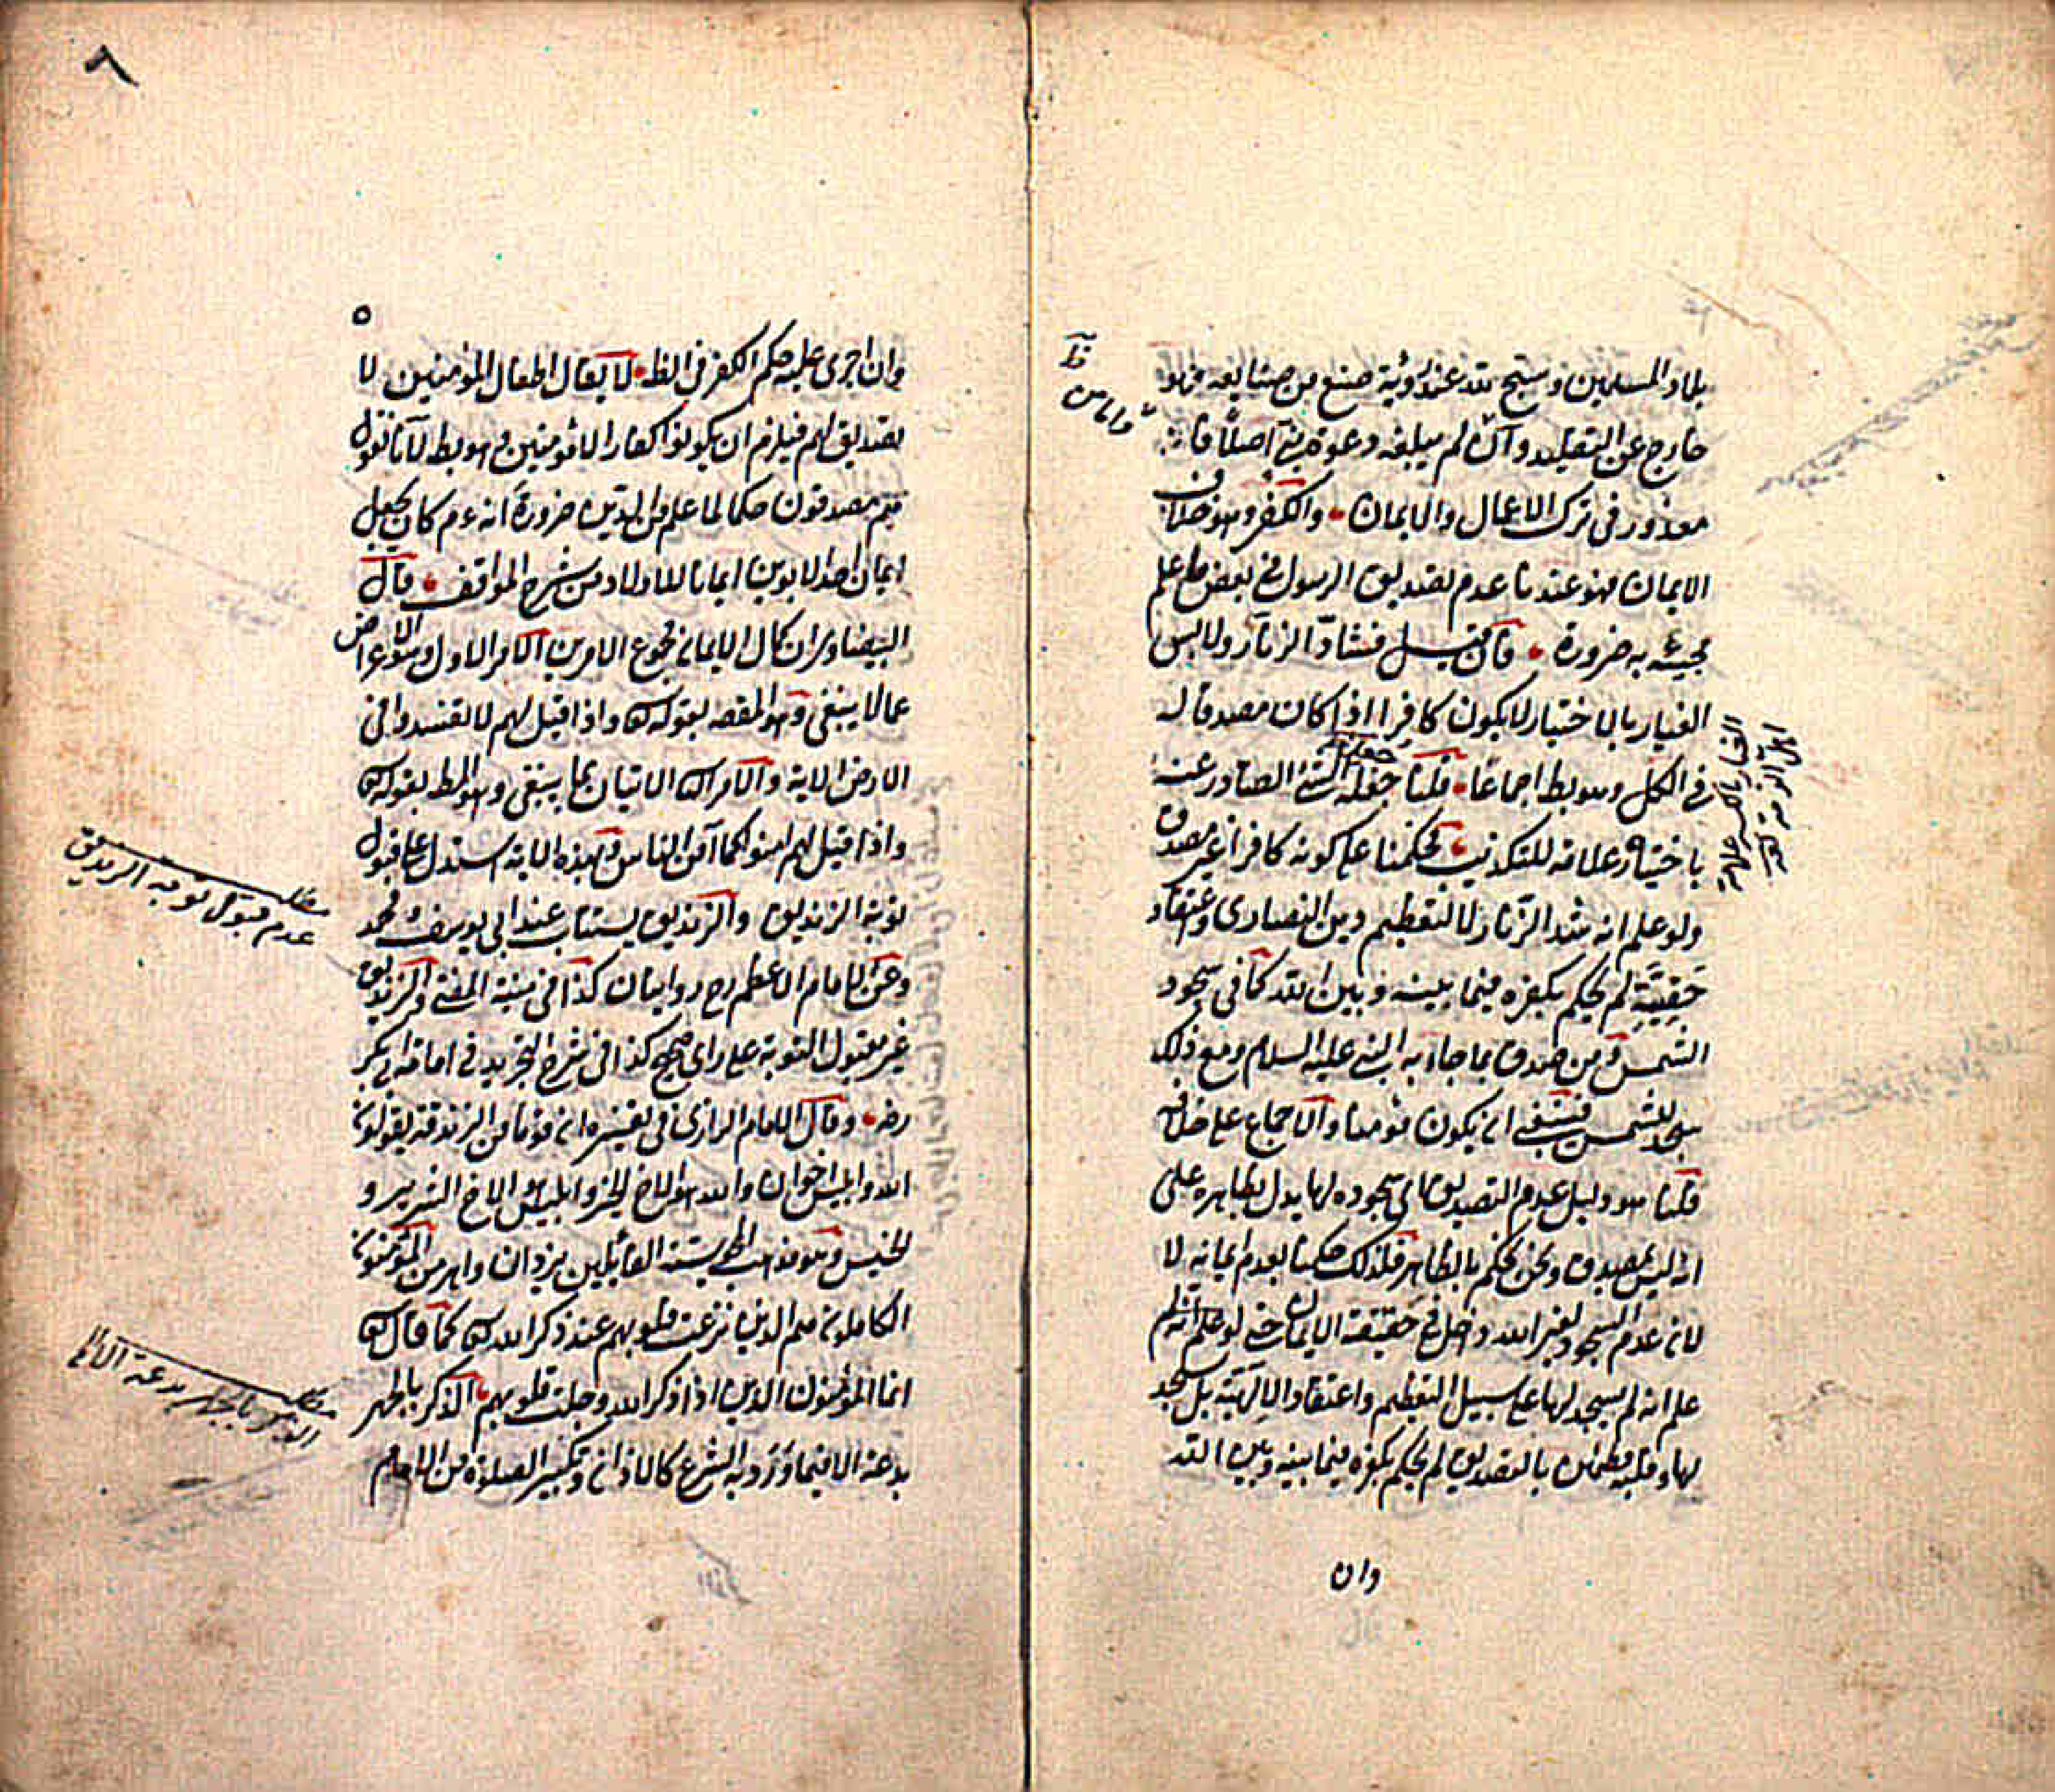 بلاد المسلمين وسبح لله عند رؤية صنع من صنايعه فهو
خارج عن التقليد وان لم يبلغه دعوة نبي اصلا فانه
معذور في ترك الاعمال والايمان والكفر وهو خلاف
الايمان فهو عندنا عدم تصديق الرسول في بعض ما علم
مجيئه به ضرورة فان قيل فشاد الزنار ولابس
الغيار بالاختيار لا يكون كافرا اذا كان مصدقا له
في الكل وهو بط اجماعا قلنا جعله الشئ الصادر عنه
باختياره علامة للتكذيب فحكمنا على كونه كافرا غير مصدق
ولو علم انه شد الزنار لا لتعظيم دين النصارى واعتقاد
حقيته لم يحكم بكفره فيما بينه وبين الله كما في سجود
الشمس ومن صدق بما جاء به النبي عليه السلام ومع ذلك
سجد للشمس فينبغي ان يكون مؤمنا والاجماع على خلافه
قلنا هو دليل عدم التصديق اي سجوده لها يدل بظاهره على
انه ليس بمصدق ونحن نحكم بالظاهر فلذلك حكمنا بعدم ايمانه لا
لان عدم السجود لغير الله داخل في حقيقة الايمان حتى لو علم انه لم
علم انه لم يسجد لها على سبيل التعظيم واعتقاد الالهية بل سجد
لها وقلبه مطمئن بالتصديق لم يحكم بكفره فيما بينه وبين الله
وان
٨
٥
وان اجرى عليه حكم الكفر في الظ لا يقال اطفال المؤمنين لا
تصديق لهم فيلزم ان يكونوا كفارا لا مؤمنين وهو بط لانا نقول
هم مصدقون حكما لما علم من الدين ضرورة انه عم كان يجعل
ايمان احد الابوين ايمانا للاولاد من شرح المواقف قال
البيضاوى ان كمال الايمان مجموع الامرين الامر الاول وهو الاعراض
عما لا ينبغى وهو المقصد بقوله تع واذا قيل لهم لا تفسدوا في
الارض الاية والامر الثا الاتيان بما ينبغى وهو المط بقوله تع
واذا قيل لهم امنوا كما آمن الناس وبهذه الاية استدل على قبول
توبة الزنديق والزنديق يستتاب عند ابى يوسف ومحمد
وعن الامام الاعظم رح روايتان كذا في منية المفتى والزنديق
غير مقبول التوبة على راى صحيح كذا في شرح التجريد في امامة ابى بكر
رضه وقال الامام الرازى في تفسيره ان قوما من الزنادقة يقولون
الله وابليس اخوان والله هو الاخ الخير وابليس هو الاخ الشرير و
الخسيس وهو مذهب المجوسية القائلين بيزدان واهرمن المؤمنون
الكاملون هم الذين نزعت قلوبهم عند ذكر الله تع كما قال تع
انما المؤمنون الذين اذا ذكر الله وجلت قلوبهم الذكر بالجهر
بدعة الا فيما ورد به الشرع كالاذان وتكبير الصلوة من الامام
مطلب
عدم قبول توبة الزنديق
مطلب
الذكر بالجهر بدعة الا الخ